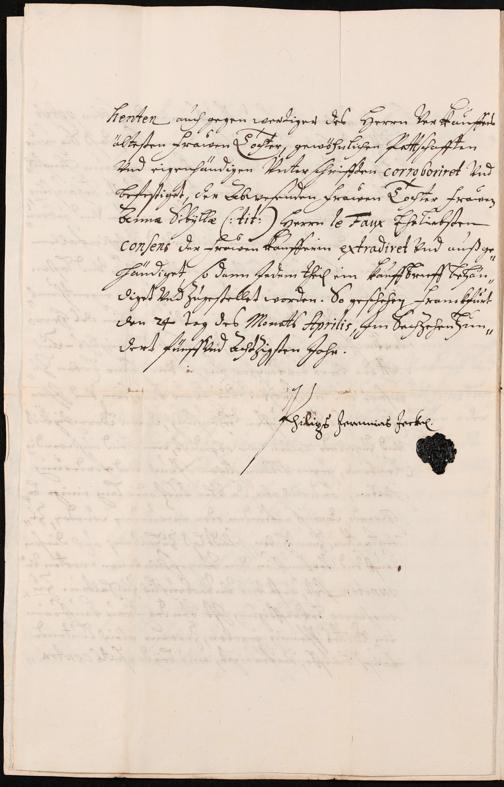 henten auch gegenwerdiger des Herren Verkäuffers
ältesten Frawen Tochter, gewöhnlichen Pettschafften
Vnd eigenhändigen Vnterschrifften corroboriret Vnd
befestiget, der Abwesenden Frawen Tochter Frawen
Sibillæ (: tit :) Herrn le Faux Eheliebsten
consens der Frawen Kaufferin extradiret Vnd außge-
händiget, so dann jedem theil ein Kauffbrieff behän-
diget Vnd zugestellet worden. So geschehen Franckfurt
den 24 Tag des Monats Aprilis, Im Sechzehenhun-
dert fünff Vnd Achtzigsten Jahr.
Philips Jeremias Jeckel